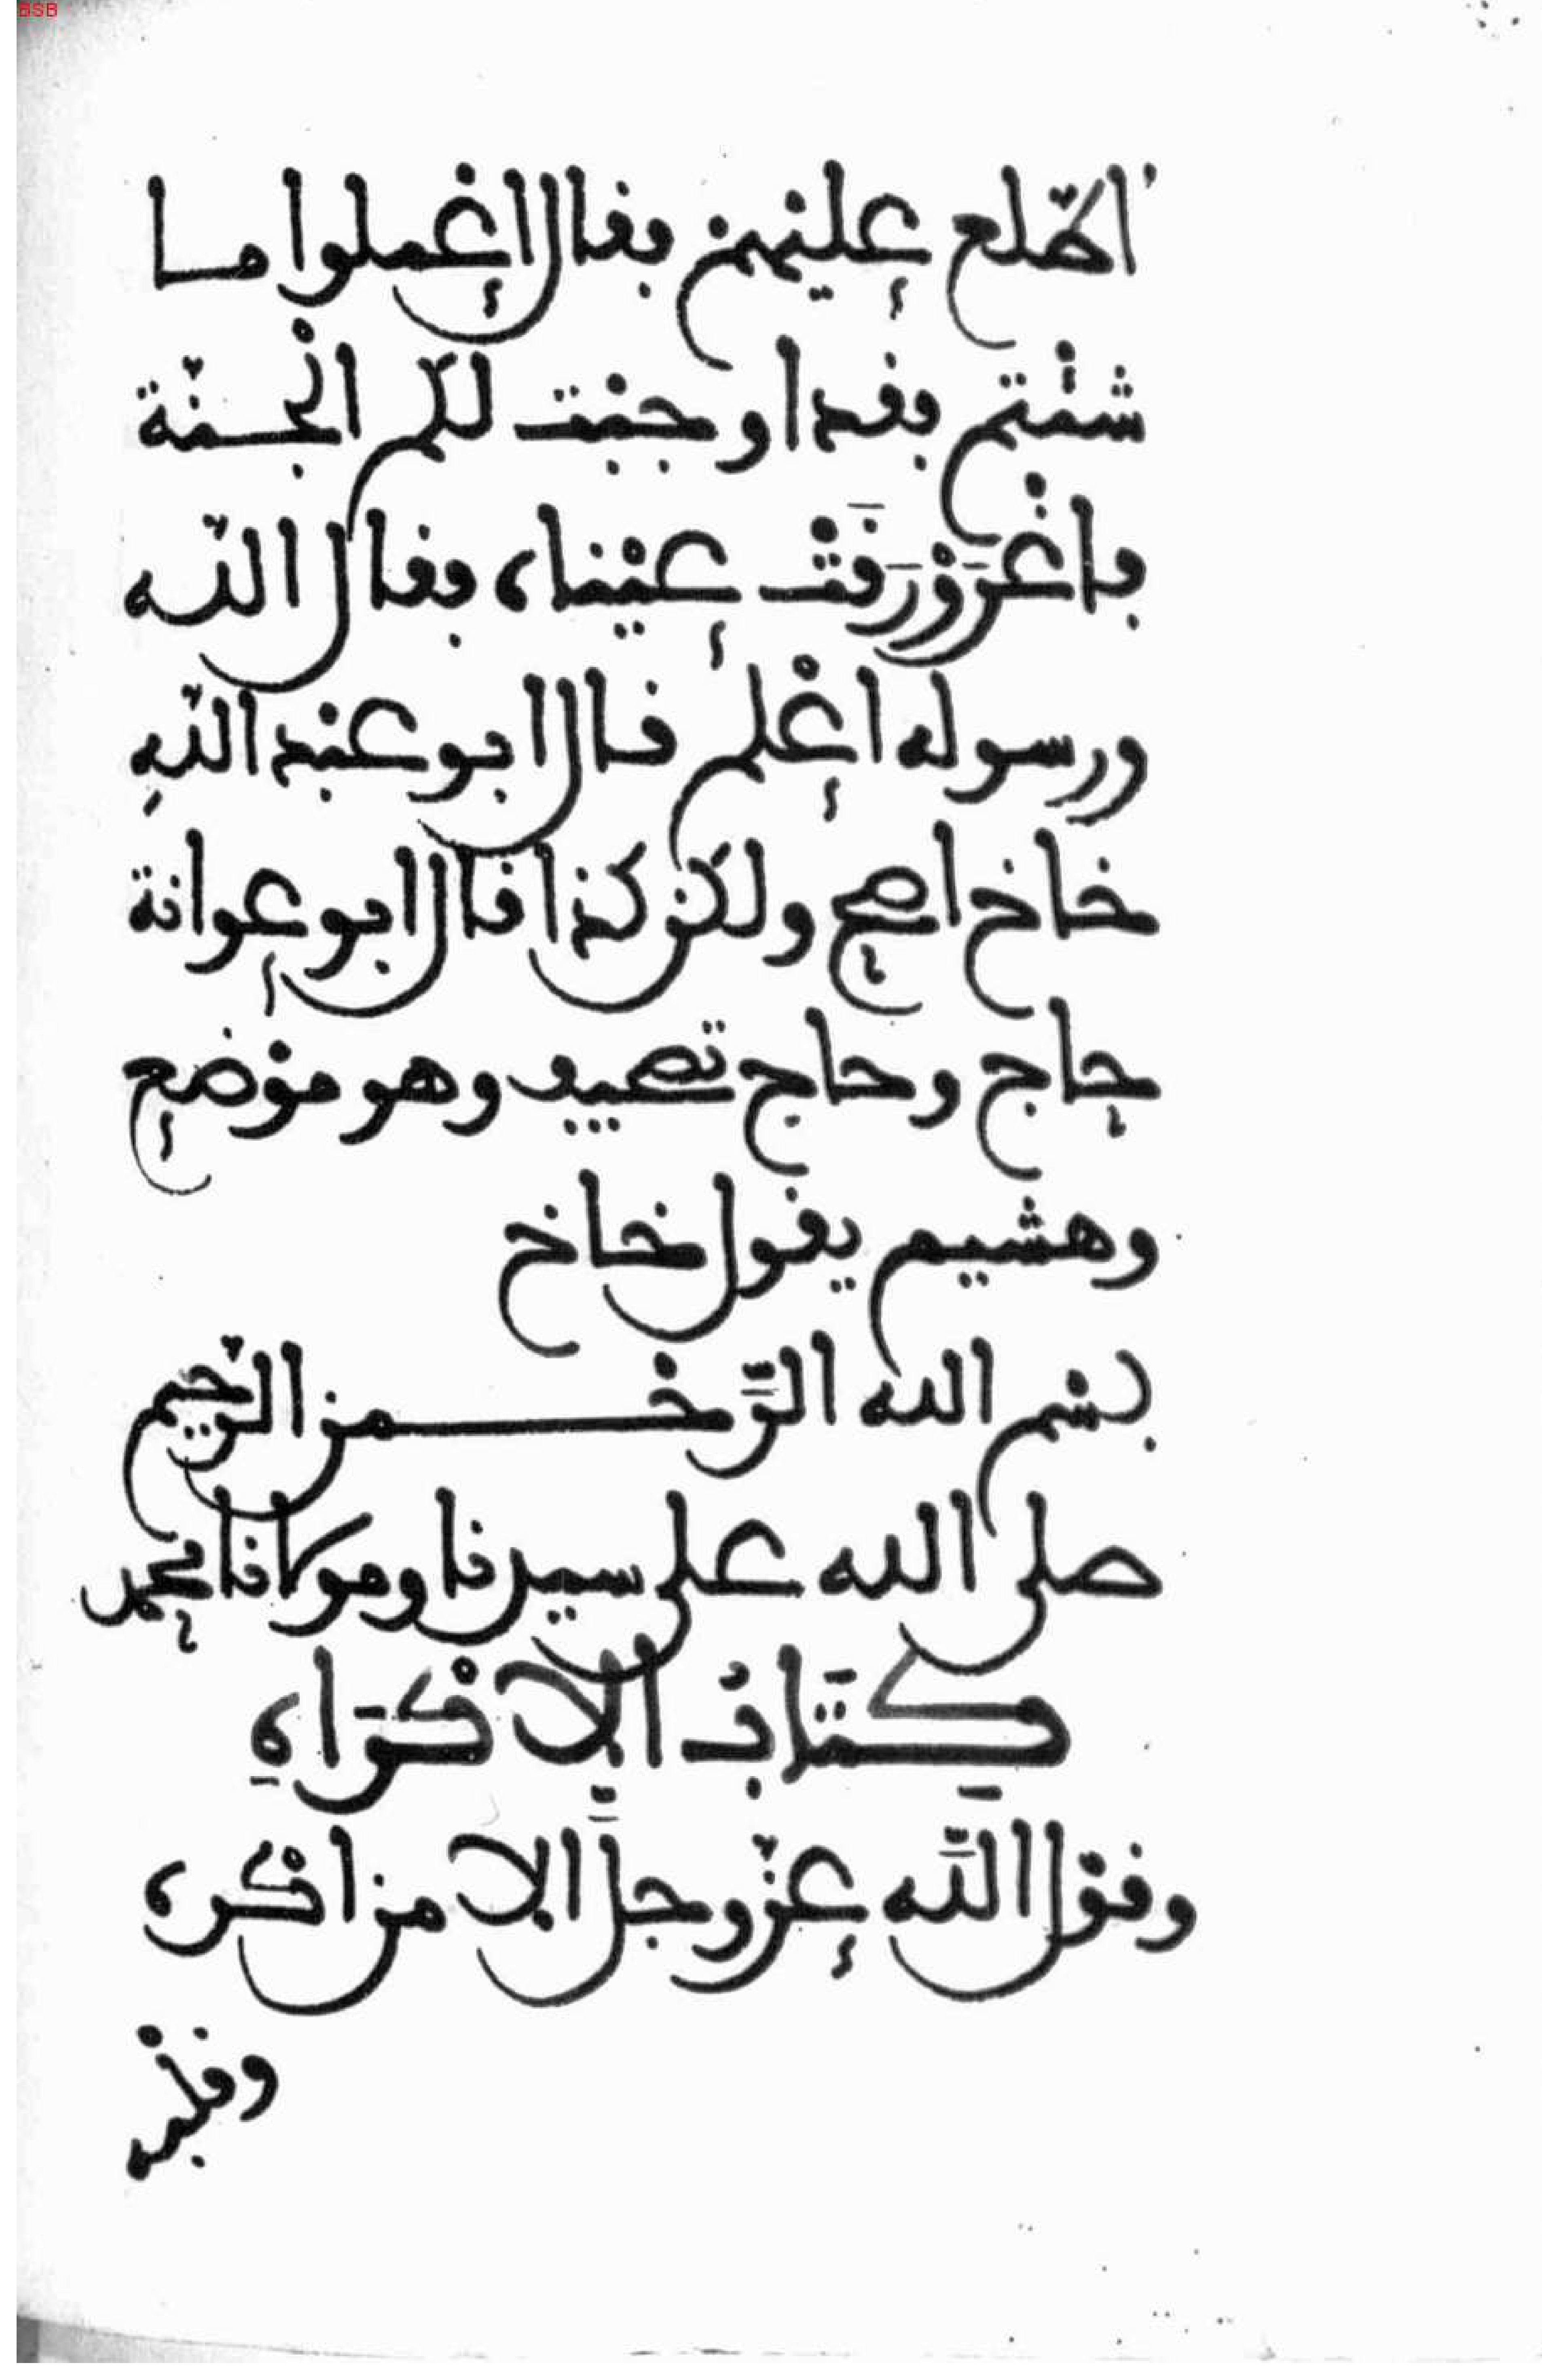 BSB
اطّلع عليهم فقال اعملوا ما
شئتم فقد اوجبت لكم الجنّة
فاغْرَوْرَقَتْ عيناه فقال اللّه
ورسوله اعْلم قال ابو عبد اللّهِ
خاخ اصح ولكن كذا قال ابو عوانة
حاج وحاج تصحيف وهو موْضع
وهشيم يقول خاخ
بسْم الله الرَّحْمن الرّحيم
صلى الله على سيدنا ومولانا محمد
كِتَابُ الاِكْرَاهِ
وقوْل اللَّه عزّ وجلَّ الا من اكْره
وقلْبه